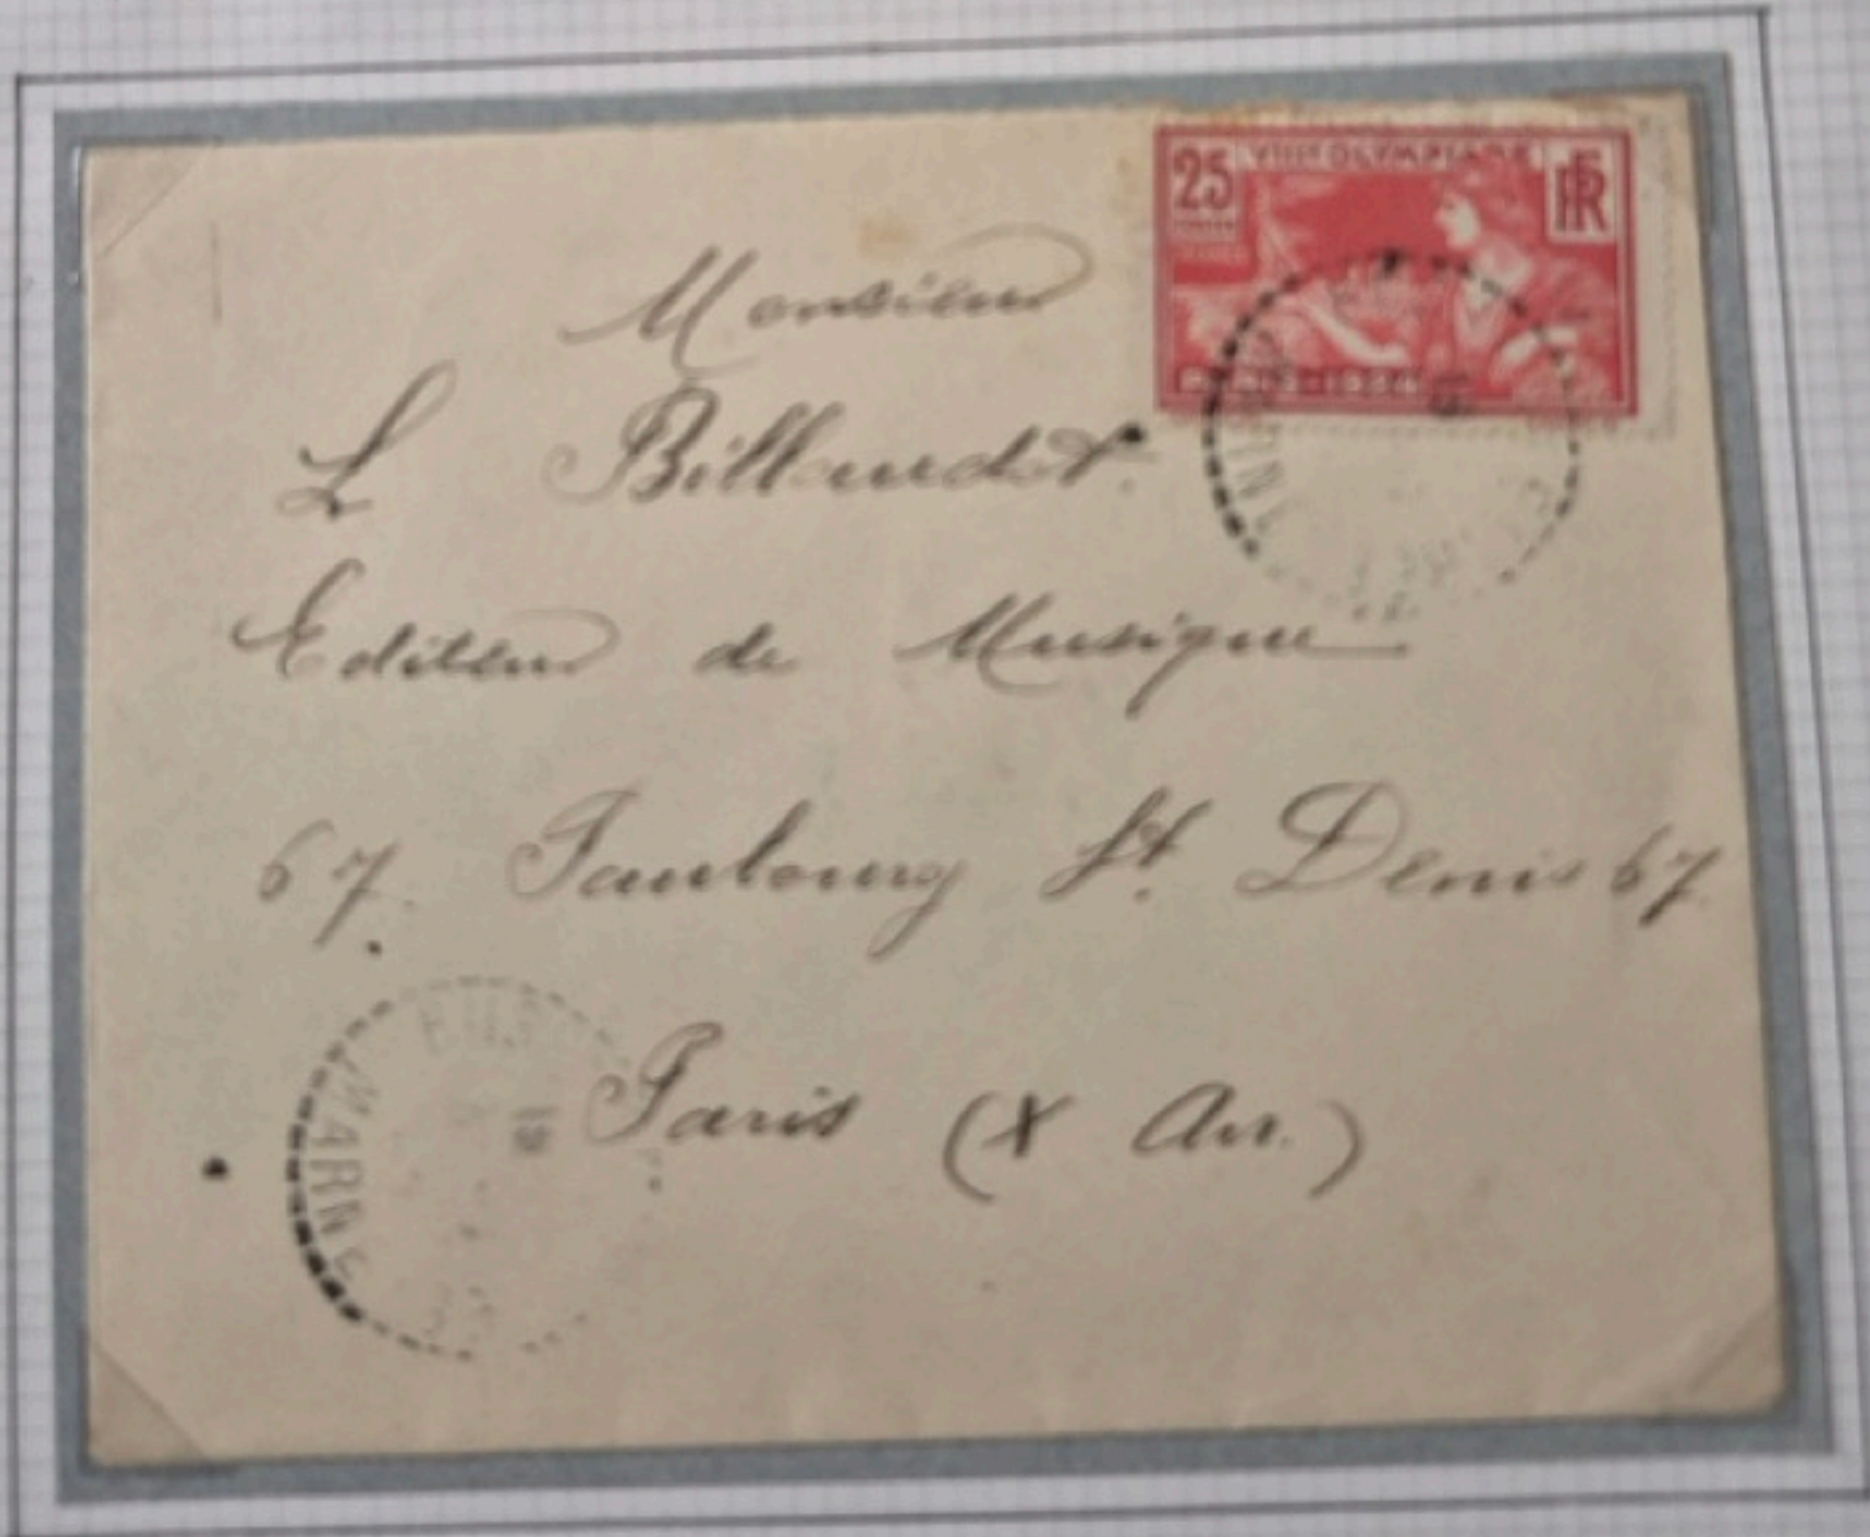 25 VIIIe OLYMPIADE RF
PARIS-1924
Monsieur
L Billaudot
Editeur de Musique
67 Faubourg St. Denis 67
Paris (X Arr.)
MARNE
19